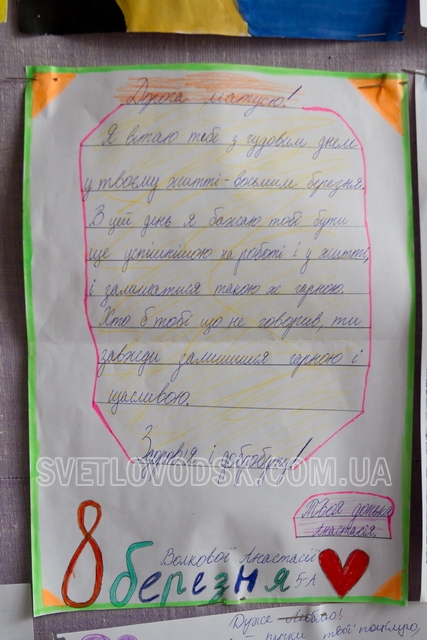 Дорога матусю!
Я вітаю тебе з чудовим днем
у твоєму житті - восьмим березня.
В цей день я бажаю тобі бути
ще успішнішою на роботі і у житті,
і залишатися такою ж гарною.
Хто б тобі що не говорив, ти
завжди залишишся гарною і
щасливою.
Здоров'я і добробуту!
SVETLOVODSK.COM.UA
Твоя донька
Анастасія.
Волкової Анастасії
5-А
8 березня
Дуже
твої поцілую,